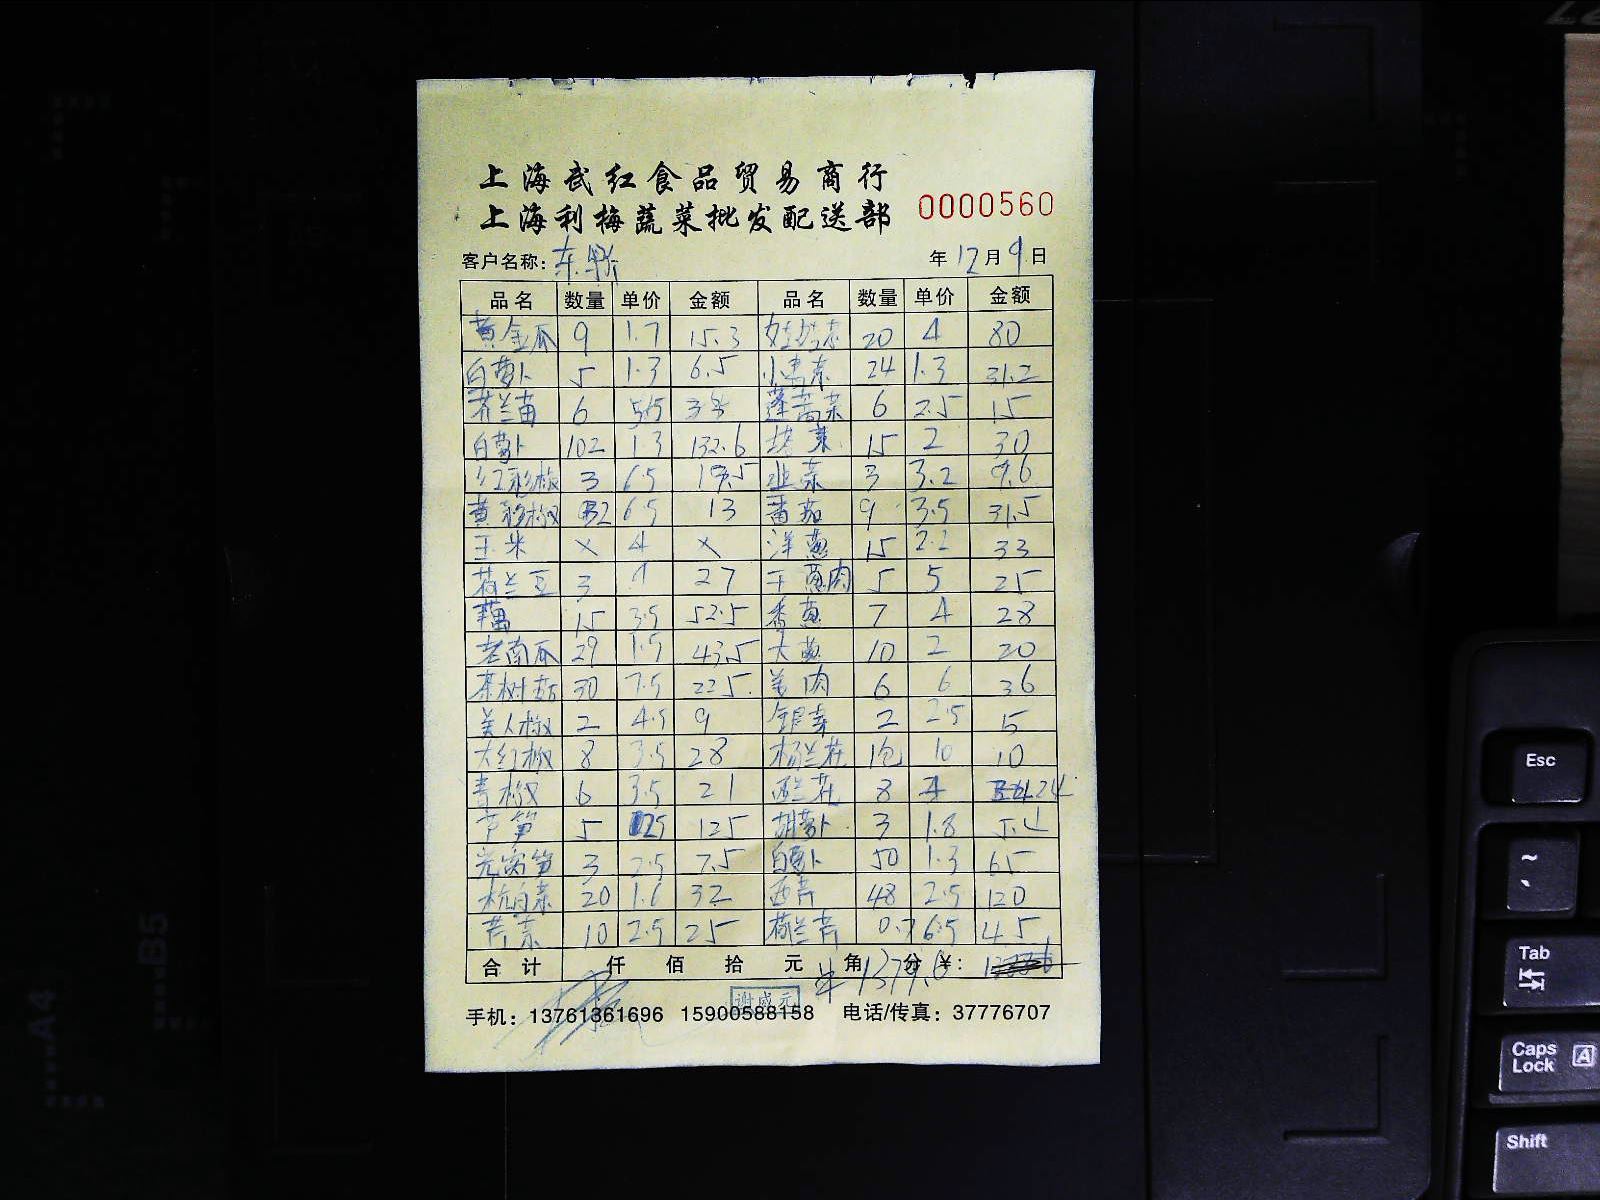 上海武红食品贸易商行
上海利梅蔬菜批发配送部 0000560
客户名称: 年 12 月 9 日
品名 数量 单价 金额 品名 数量 单价 金额
黄金瓜 9 1.7 15.3 娃娃菜 20 4 80
白萝卜 5 1.3 6.5 小青菜 24 1.3 31.2
芥兰苗 6 5.5 33 蓬蒿菜 6 2.5 15
白萝卜 102 1.3 132.6 塔菜 15 2 30
红彩椒 3 6.5 19.5 韭菜 3 3.2 9.6
黄彩椒 2 6.5 13 番茄 9 3.5 31.5
玉米 × 4 × 洋葱 15 2.2 33
荷兰豆 3 9 27 干葱肉 5 5 25
藕 15 3.5 52.5 香葱 7 4 28
老南瓜 29 1.5 43.5 大葱 10 2 20
茶树菇 30 7.5 225 姜肉 6 6 36
美人椒 2 4.5 9 银芽 2 2.5 5
大红椒 8 3.5 28 杨兰花 1包 10 10
青椒 6 3.5 21 西兰花 8 24
芦笋 5 25 125 胡萝卜 3 1.8 5.4
光莴笋 3 2.5 7.5 白萝卜 50 1.3 65
杭白菜 20 1.6 32 西芹 48 2.5 120
芹菜 10 2.5 25 荷兰芹 0.7 6.5 4.5
合计 仟 佰 拾 元 角 分 ¥: 1379.6
谢成元
手机: 13761361696 15900588158 电话/传真: 37776707
Esc
~
Tab
Caps Lock A
Shift
B5
A4